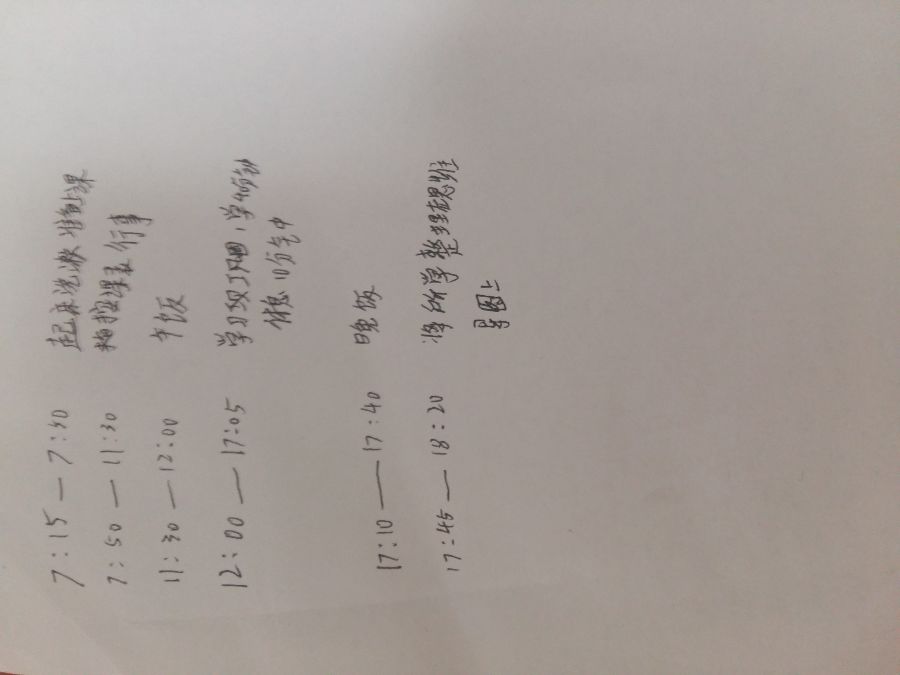 7:15 — 7:50 起床洗漱 准备上课
7:50 — 11:30 按课表行事
11:30 — 12:00 午饭
12:00 — 17:05 学习
休息10分钟
17:10 — 17:40 晚饭
17:45 — 18:20 将所学整理思维
导图上